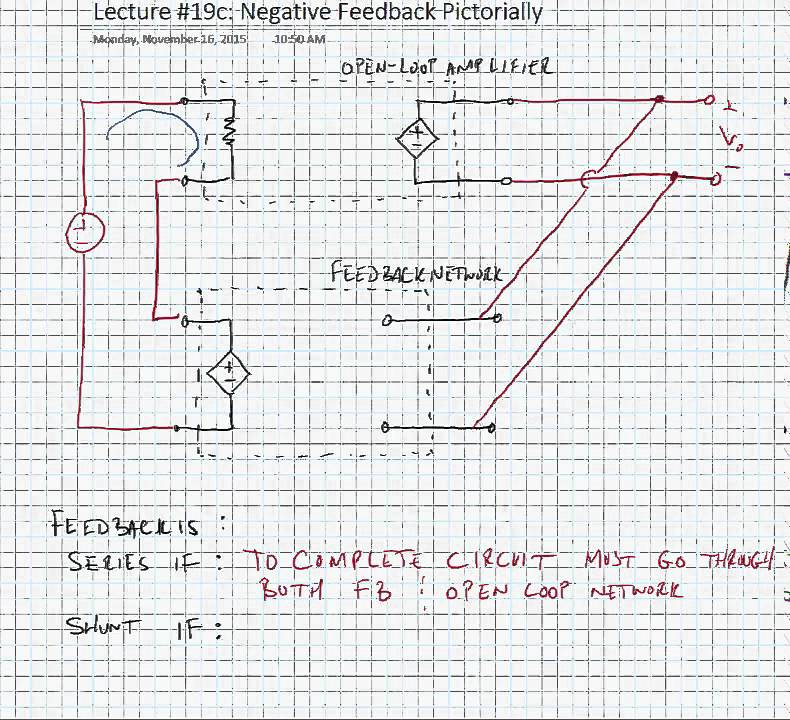 Lecture #19c: Negative Feedback Pictorially
Monday, November 16, 2015 10:50 AM
OPEN-LOOP AMPLIFIER
+
-
+
-
Vo
+
-
FEEDBACK NETWORK
+
-
FEEDBACK IS :
SERIES IF : TO COMPLETE CIRCUIT MUST GO THROUGH
BOTH FB & OPEN LOOP NETWORK
SHUNT IF :